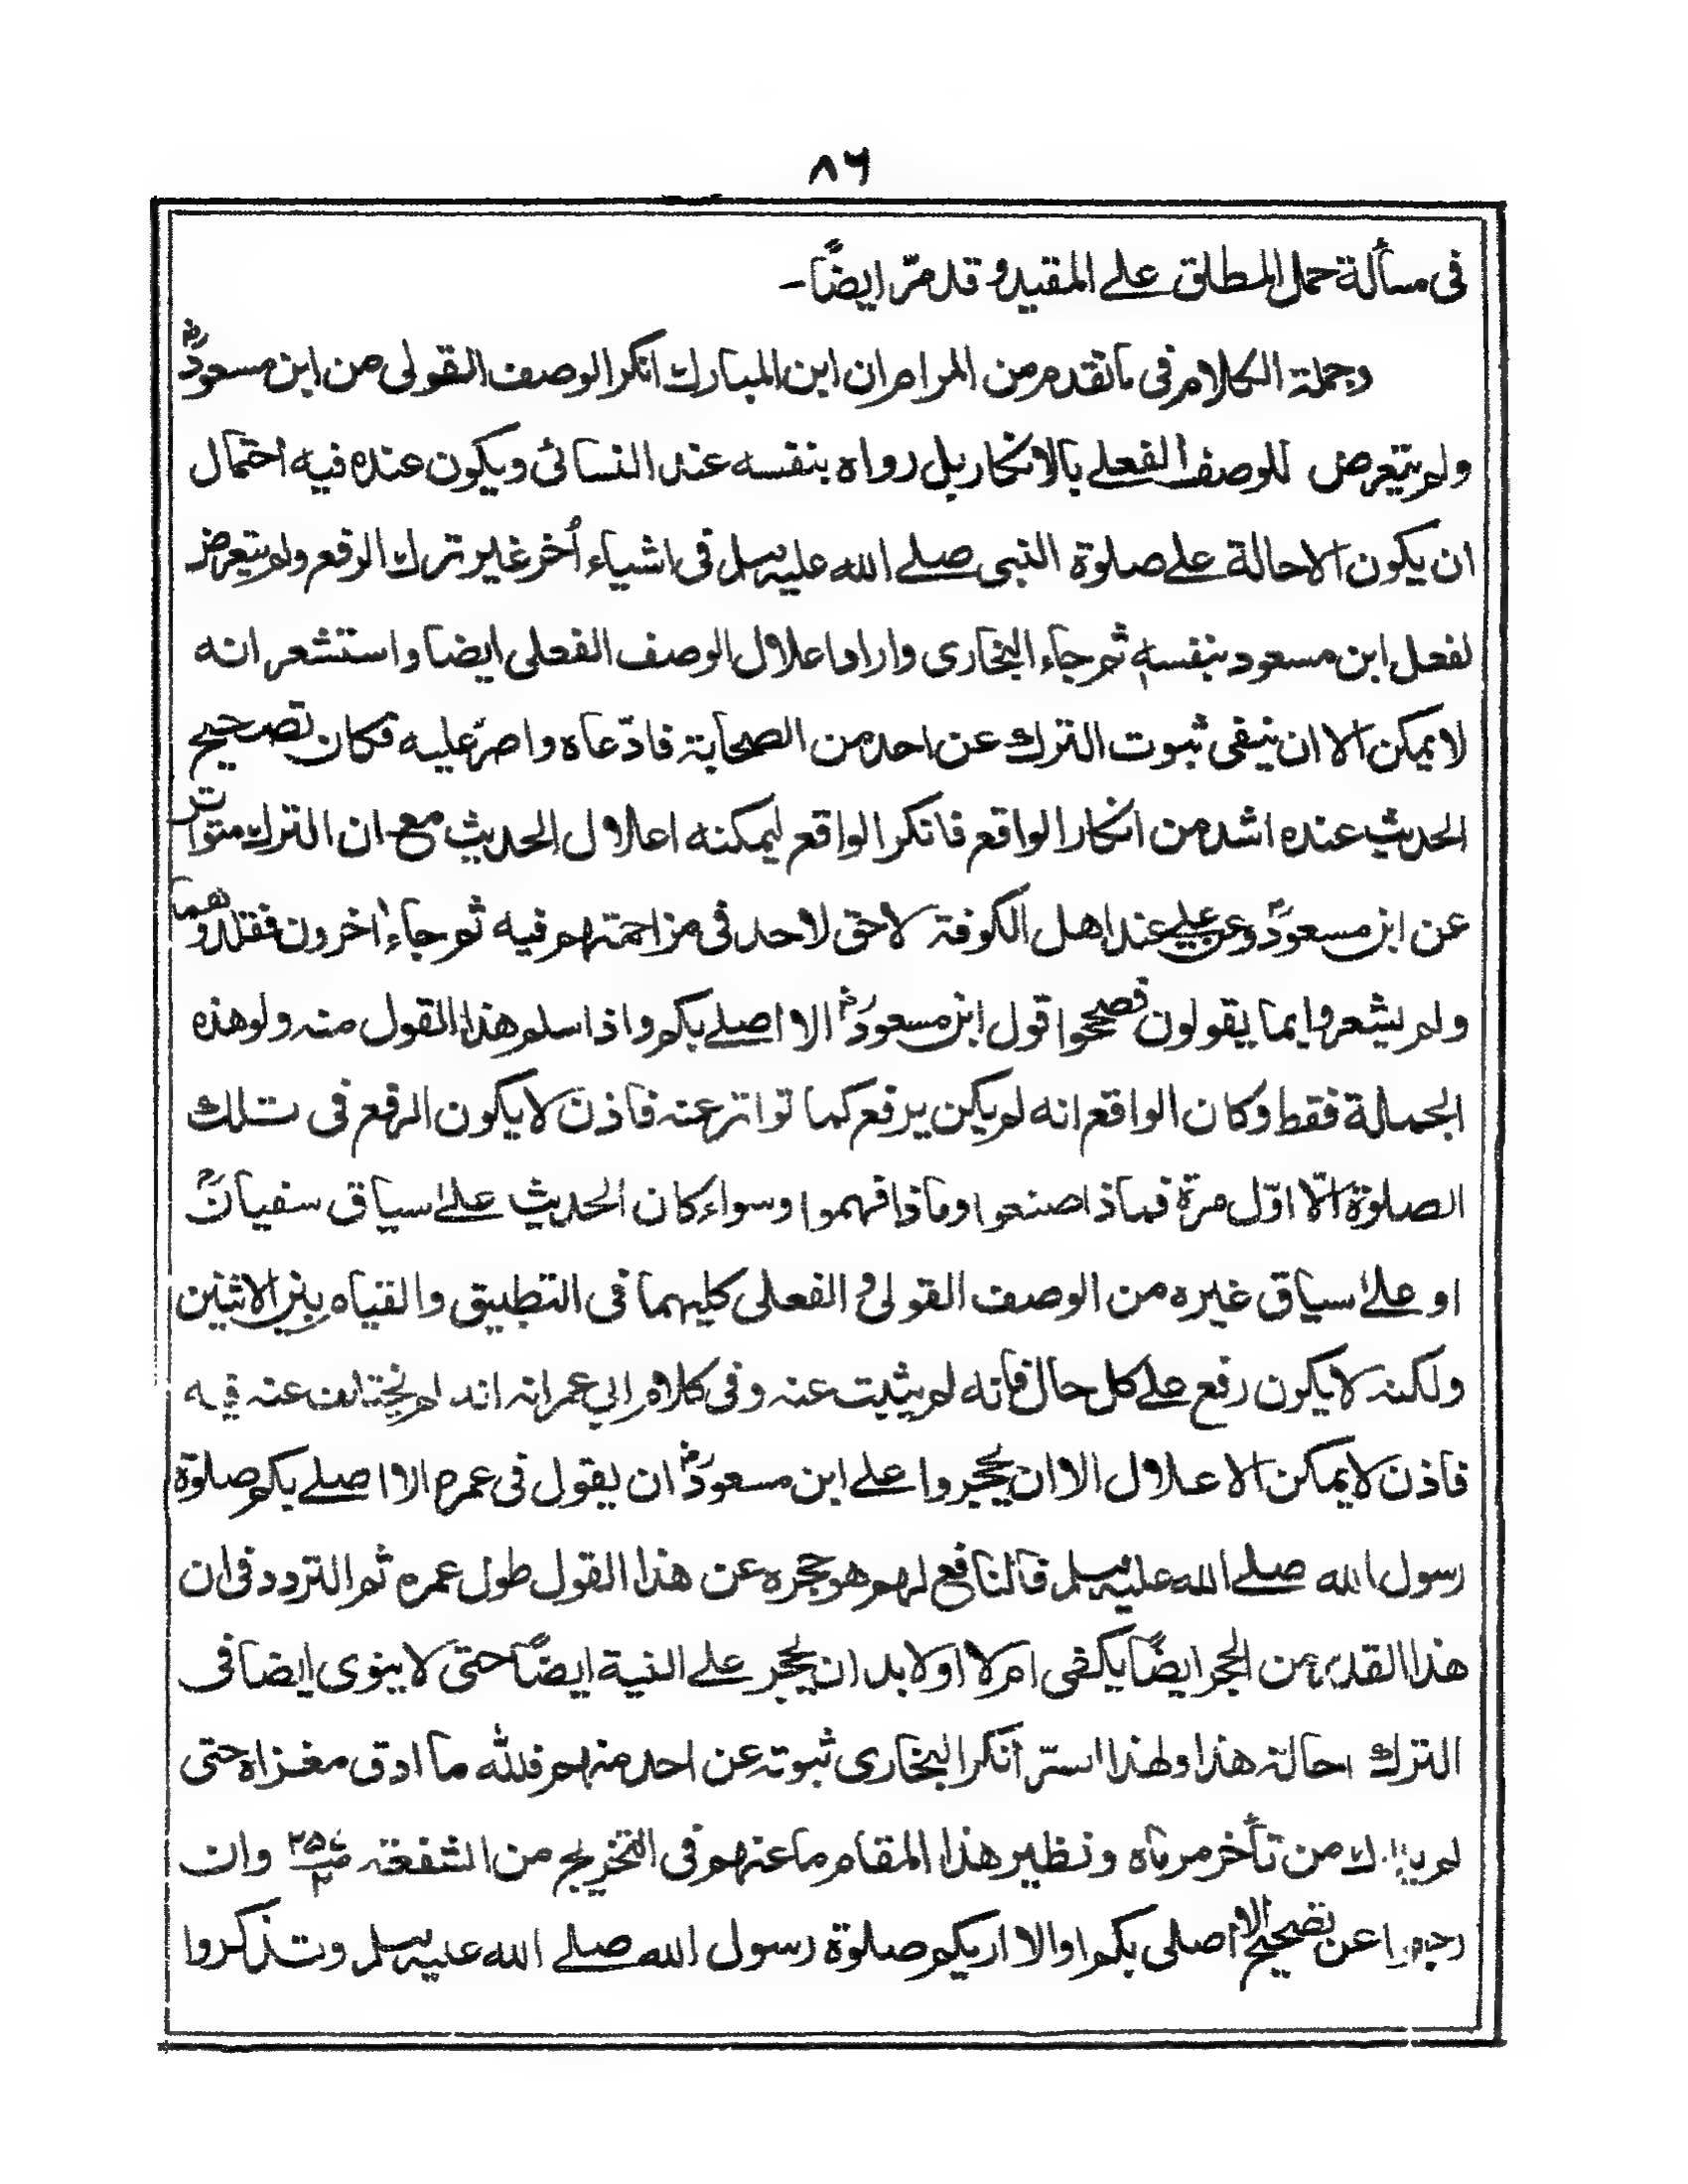 ٨٦
فى مسألة حمل المطلق على المقيد وقد مرّ ايضًا-
وجملة الكلام فى ماتقدم من المرام ان ابن المبارك انكر الوصف القولى من ابن مسعودؓ
ولم يتعرض للوصف الفعلى بالانكار بل رواه بنفسه عند النسائى ويكون عنده فيه احتمال
ان يكون الاحالة على صلوة النبى صلے الله عليه وسلم فى اشياء اُخر غير ترك الرفع ولم يتعرض
لفعل ابن مسعود بنفسه ثم جاء البخارى واراد اعلال الوصف الفعلى ايضا واستشعر انه
لا يمكن الا ان ينفى ثبوت الترك عن احد من الصحابة فادّعاه واصرّ عليه فكان تصحيح
الحديث عنده اشد من انكار الواقع فانكر الواقع ليمكنه اعلال الحديث مع ان الترك متواتر
عن ابن مسعودؓ وعن علىؓ عند اهل الكوفة لا حق لاحد فى مزاحمتهم فيه ثم جاء اخرون فقلدوهما
ولم يشعروا بما يقولون فصححوا قول ابن مسعودؓ الا اصلے بكم واذا سلم هذا القول منه ولو هذه
الجملة فقط وكان الواقع انه لم يكن يرفع كما تواتر عنه فاذن لا يكون الرفع فى تلك
الصلوة الّا اوّل مرة فماذا صنعوا وماذا فهموا وسواء كان الحديث على سياق سفيانؒ
او على سياق غيره من الوصف القولى والفعلى كليهما فى التطبيق والقيام بين الاثنين
ولكنه لا يكون رفع على كل حال فانه لم يثبت عنه وفى كلام ابي عمر انه لم يختلف عنه فيه
فاذن لا يمكن الاعلال الا ان يحجروا على ابن مسعودؓ ان يقول فى عمره الا اصلے بكم صلوة
رسول الله صلے الله عليه وسلم فالنافع لهم هو حجره عن هذا القول طول عمره ثم التردد فى ان
هذا القدر من الحجر ايضًا يكفى ام لا او لابد ان يحجر على النية ايضًا حتى لا ينوى ايضا فى
الترك احالة هذا ولهذا السرّ انكر البخارى ثبوته عن احد منهم فلله ما ادق مغزاه حتى
لم يدرك من تأخر مرماه ونظير هذا المقام ما عنهم فى التخريج من الشفعة ص٢٥٤ ج٢ وان
رجعوا عن تصحيح الا اصلى بكم او الا اريكم صلوة رسول الله صلے الله عليه وسلم وتذكروا